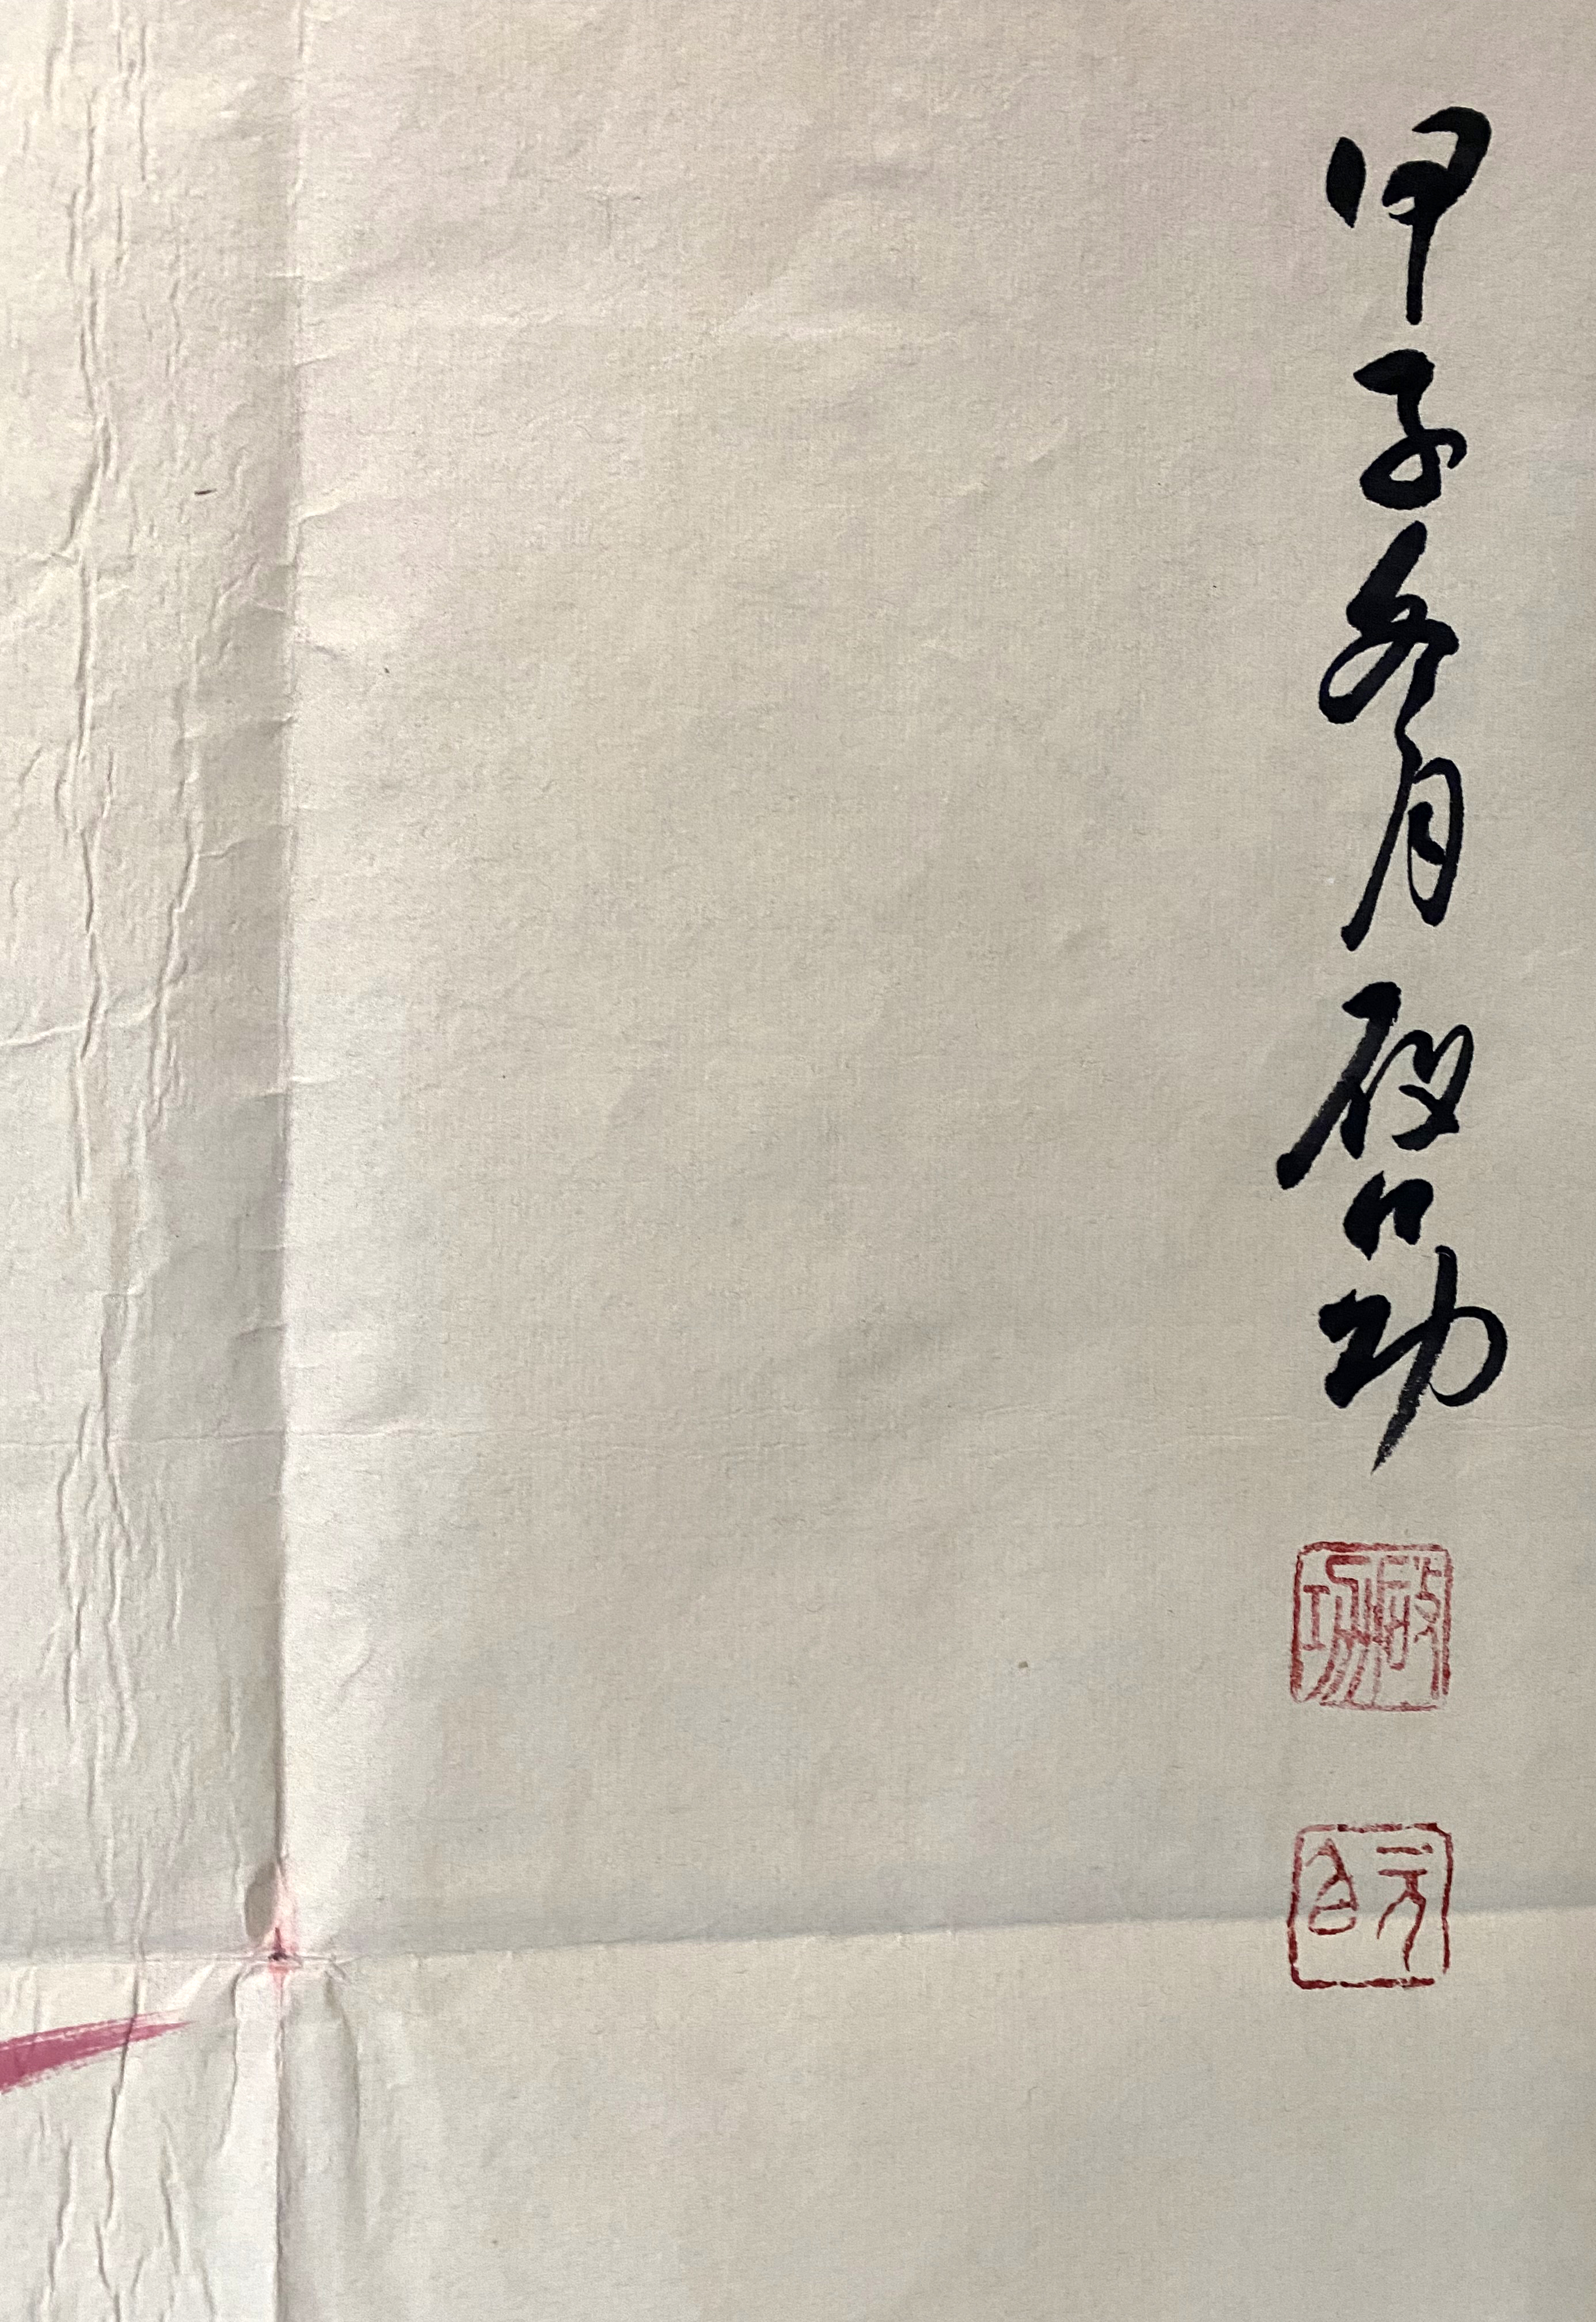 甲子冬月啟功
啟功
元白